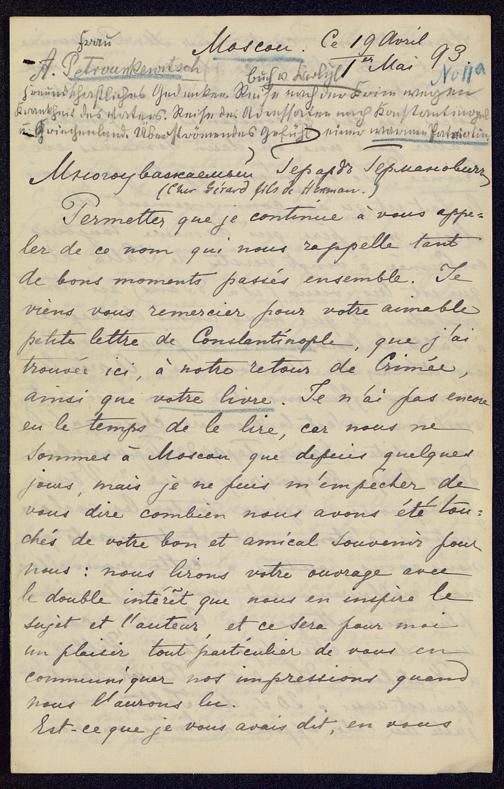 Frau
Moscou. Ce 19 Avril
A. Petrounkewitsch
1er Mai 93
No 11a
freundschaftliches Gedenken Reise nach der Krim wegen
Krankheit des Vaters. Reise des Adressaten nach Konstantinopel
u. Griechenland. Überströmendes Gefühl einer warmen Patriotin
Многоуважаемый Герардъ Германовичъ
(Cher Gérard fils de Herman.)
Permettez que je continue à vous appe=
ler de ce nom qui nous rappelle tant
de bons moments passés ensemble. Je
viens vous remercier pour votre aimable
petite lettre de Constantinople, que j'ai
trouvée ici, à notre retour de Crimée,
ainsi que votre livre. Je n'ai pas encore
eu le temps de le lire, car nous ne
sommes à Moscou que depuis quelques
jours, mais je ne puis m'empêcher de
vous dire combien nous avons été tou=
chés de votre bon et amical souvenir pour
nous: nous lirons votre ouvrage avec
le double intérêt que nous en inspire le
sujet et l'auteur, et ce sera pour moi
un plaisir tout particulier de vous en
communiquer nos impressions quand
nous l'aurons lu.
Est-ce que je vous avais dit, en vous